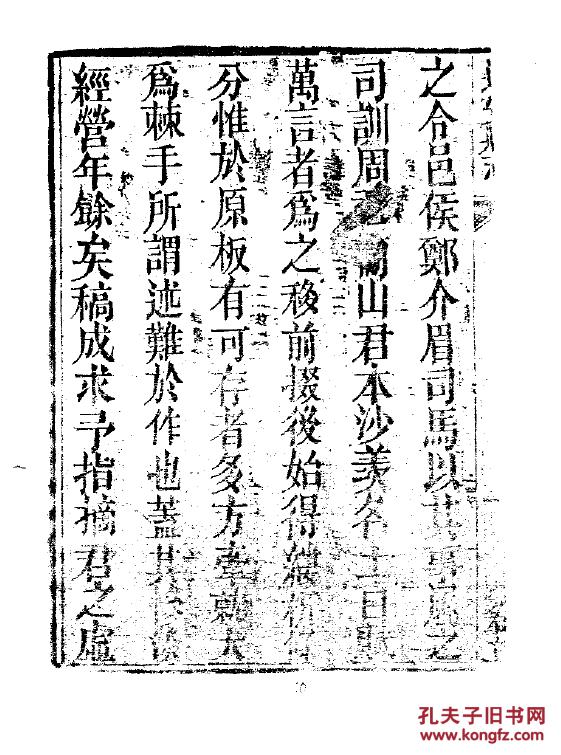 之今邑侯鄭介眉司馬以其事屬之
司訓周山君本沙羡名士日試
萬言者爲之移前掇後始得
分惟於原板有可存者多方牽就大
爲棘手所謂述難於作也蓋其
經營年餘矣稿成求予指摘君之虛
孔夫子旧书网
www.kongfz.com